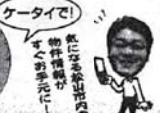 ケータイで!
気になる松山市内の
物件情報が
すぐお手元に!